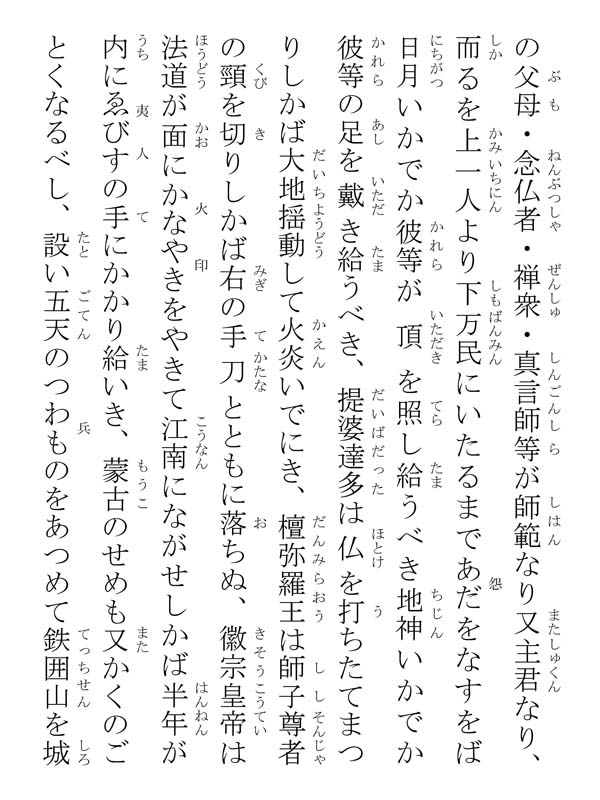 の父母・念仏者・禅衆・真言師等が師範なり又主君なり、
而るを上一人より下万民にいたるまであだをなすをば
日月いかでか彼等が頂を照し給うべき地神いかでか
彼等の足を戴き給うべき、提婆達多は仏を打ちたてまつ
りしかば大地揺動して火炎いでにき、檀弥羅王は師子尊者
の頸を切りしかば右の手刀とともに落ちぬ、徽宗皇帝は
法道が面にかなやきをやきて江南にながせしかば半年が
内にゑびすの手にかかり給いき、蒙古のせめも又かくのご
とくなるべし、設い五天のつわものをあつめて鉄囲山を城